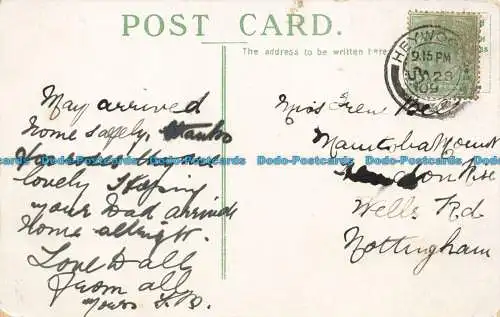 POST CARD.
The address to be written here
HEYWOO
9.15 PM
JA 28
09
May arrived
home safely, thanks
lovely Hoping
your Dad arrived
home allright.
Love to all
from all
yours
Miss
Manitoba Mount
Rise
Wells Rd
Nottingham
Dodo-Postcards Dodo-Postcards Dodo-Postcards Dodo-Postcards Dodo-Postcards